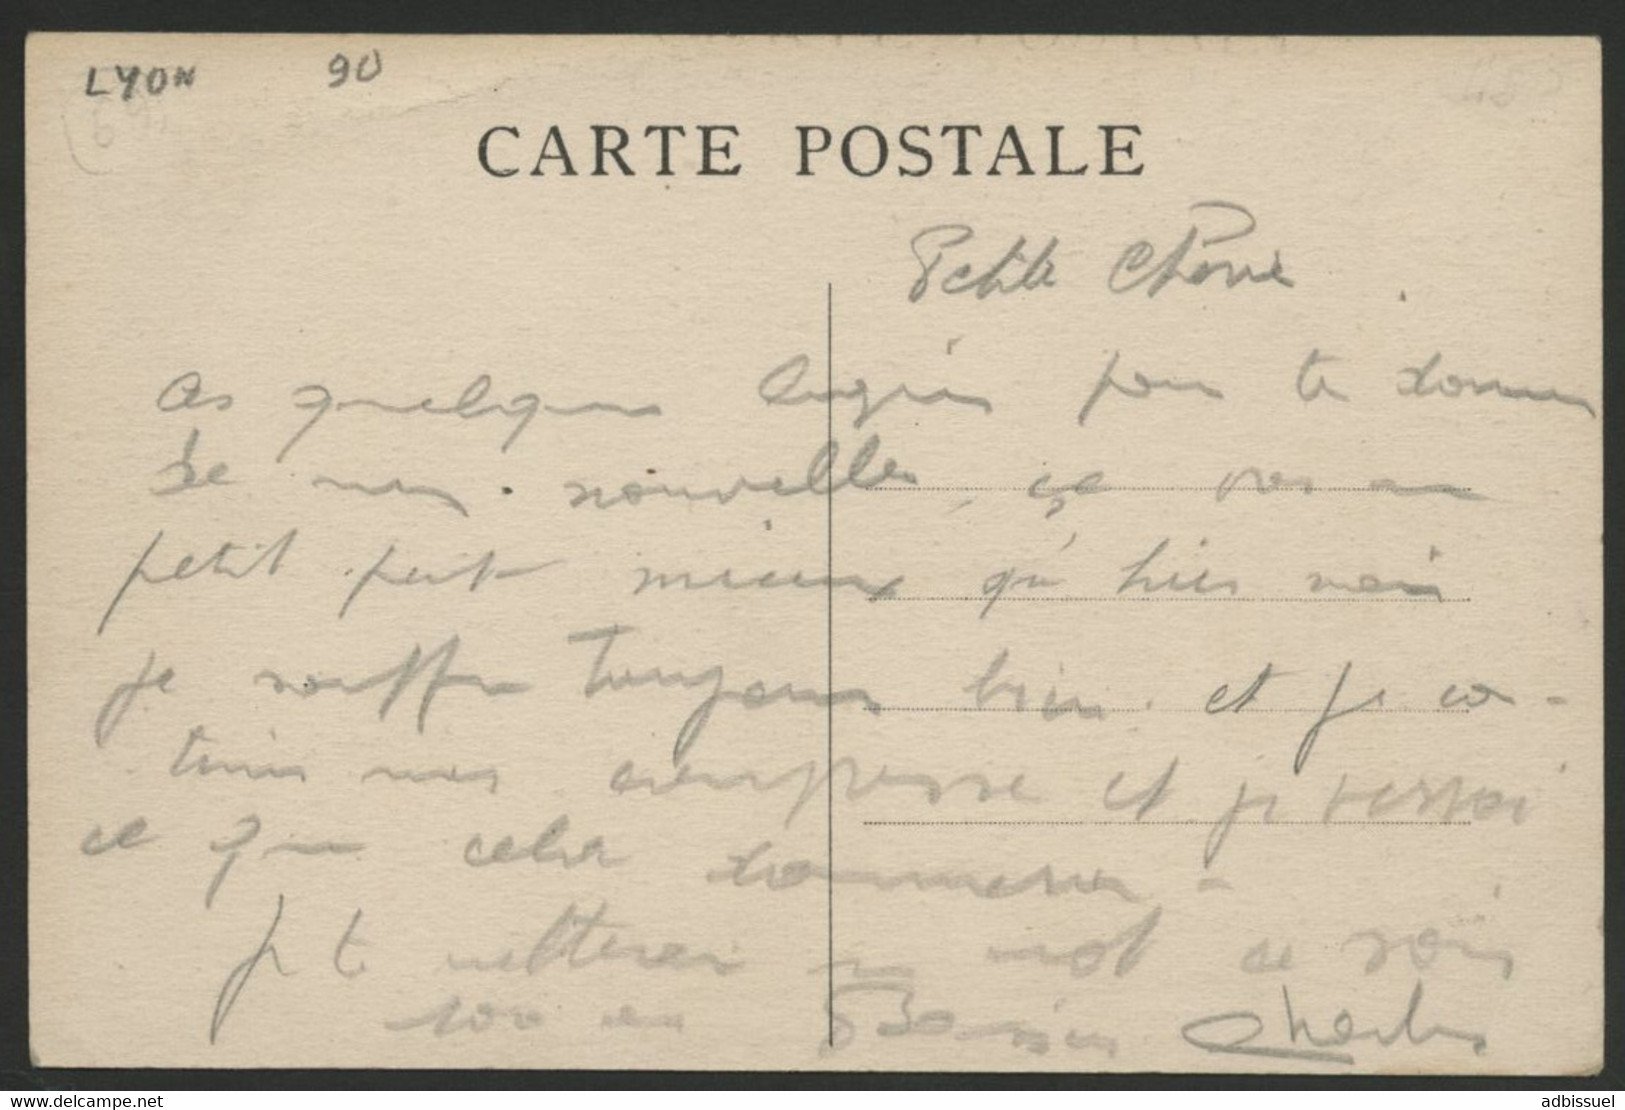 LYON 90
(69)
CARTE POSTALE
Petite Cherie
ces quelques lignes pour te donner
de mes nouvelles, ça vas un
petit peit mieux qu'hier mais
je souffre toujours bien et je con-
tinu mes compresse et je verrai
ce que cela donnera -
Je te metterai un mot ce soir
100 000 Baisers Charles
www.delcampe.net
adbissuel